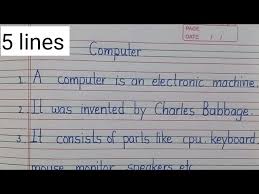 5 lines
PAGE
DATE / /
Computer
1. A computer is an electronic machine.
2. It was invented by Charles Babbage.
3. It consists of parts like cpu. keyboard
mouse, monitor, speakers etc